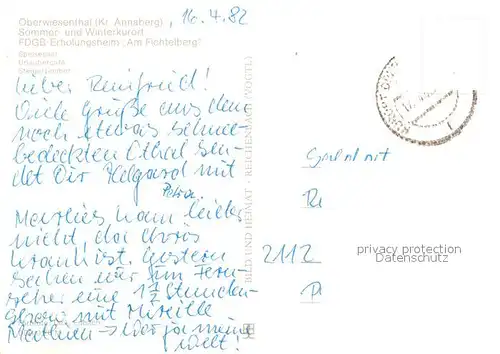 Oberwiesenthal (Kr. Annaberg)
Sommer- und Winterkurort
FDGB-Erholungsheim „Am Fichtelberg"
Speisesaal
Urlaubercafé
Skelettzimmer
16.4.82
Lieber Reinfried!
Viele Grüße aus dem
noch etwas schnee-
bedeckten Othal sen-
det Dir Helgard mit
Petra.
Marlies kam leider
nicht, da Doris
krank ist. Gestern
sahen wir im Fern-
seher eine 1½ Stunden-
Show mit Mireille
Mathieu → War ja mein
Welt!
BILD UND HEIMAT · REICHENBACH (VOGTL)
2112
privacy protection
Datenschutz